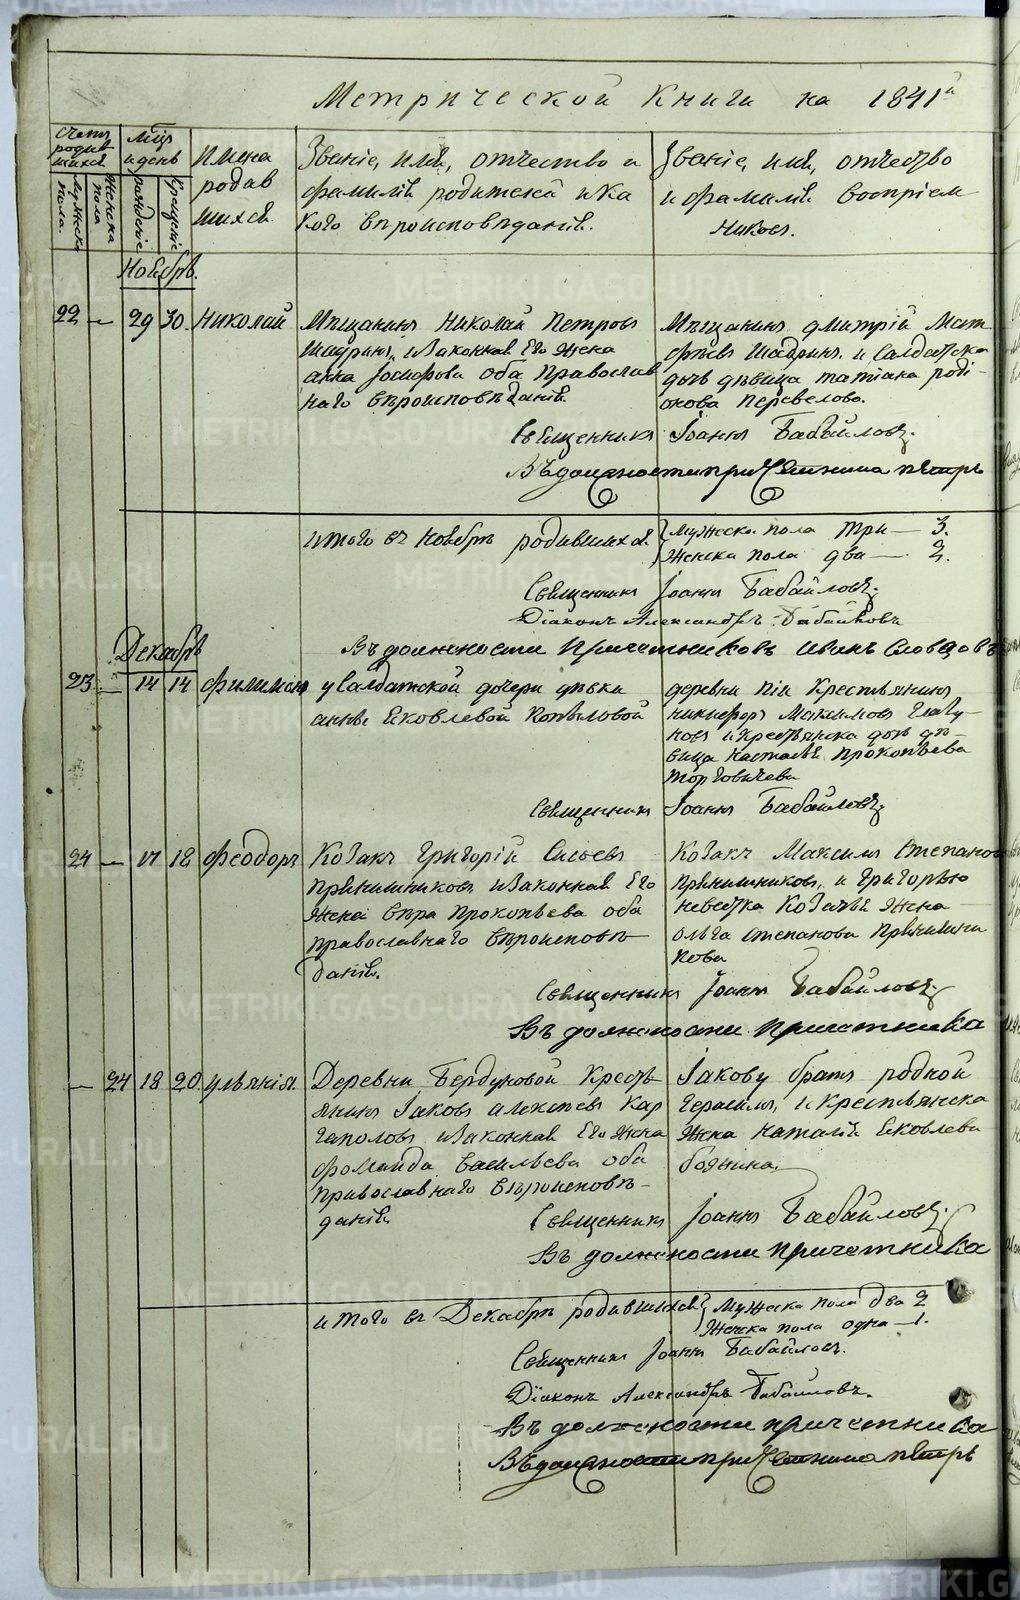 Метрической Книги на 1841й
счетъ родив шихся
мца и день
Имена родив шихся.
Званіе, имя, отчество и
фамилія родителей и ка
кого вѣроисповѣданія.
Званіе, имя, отчество
и фамилія воспріем
никовъ.
Мужска пола.
Женска пола
рожденіе
крещеніе
Ноября.
22 — 29 30. Николай
Мѣщанинъ Николай Петровъ
Шадринъ, и законная Его жена
анна Іосифова оба Православ
наго вѣроисповѣданія.
Мѣщанинъ дмитрій Мат
фѣевъ Шадринъ, и Салдатска
дочь дѣвица татіана роді-
онова Перевалова.
Священникъ Іоаннъ Бабайловъ.
Въ должности причетника пётръ
итого въ ноябрѣ родившихся.
Мужеска пола три — 3.
Женска пола два — 2.
Священникъ Іоаннъ Бабайловъ.
Діаконъ Александръ Бабайловъ
Въ должности Причетниковъ иванъ Словцовъ
Декабрь
23 — 14 14 филимонъ
у Салдатской дочери дѣвки
анны Яковлевой Копыловой
деревни Крестьянинъ
никифоръ Максимовъ
новъ и крестьянска дочь дѣ-
вица настасья Прокопьева
Торговичева
Священникъ Іоаннъ Бабайловъ
24 — 17 18 феодоръ
Козакъ Григорій Сысоевъ
Прянишниковъ и законная Его
жена вѣра прокопьева оба
православнаго вѣроисповѣ-
данія.
Козакъ Максимъ Степановъ
Прянишниковъ, и Григорью
невестка Козачья жена
ольга степанова прянишни
кова
Священникъ Іоаннъ Бабайловъ
Въ должности причетника
— 24 18 20. ульянія
Деревни Бердюковой Кресть
янинъ Іаковъ алексѣевъ Кар
гаполовъ и законная Его жена
фомаида васильева оба
православнаго вѣроисповѣ-
данія.
Іакову братъ родной
герасимъ, и крестьянска
жена наталія Яковлева
Священникъ Іоаннъ Бабайловъ.
Въ должности причетника
итого въ Декабрѣ родившихся.
Мужеска пола два 2
Женска пола одна — 1.
Священникъ Іоаннъ Бабайловъ.
Діаконъ Александръ Бабайловъ.
Въ должности причетника
Въ должности причетника пётръ
METRIKI.GASO-URAL.RU